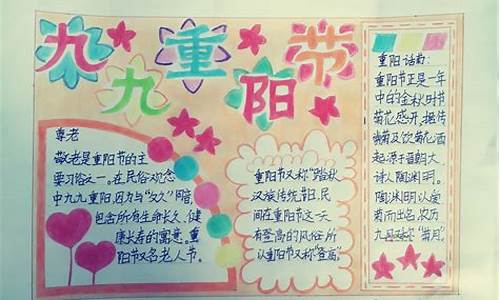 九九重阳节
尊老
敬老是重阳节的主
要习俗之一。在民俗观念
中九九重阳,因为与"久久"同音,
包含所有生命长久、健
康长寿的寓意。重
阳节又名老人节。
重阳节又称"踏秋"
汉族传统节日。民
间在重阳节这一天
有登高的风俗,所
以重阳节又称"登高"。
重阳话菊:
重阳节正是一年
中的金秋时节
菊花盛开,据传
赏菊及饮菊花酒
起源于晋朝大
诗人陶渊明。
陶渊明以爱
菊而出名,农历
九月又称"菊月"。